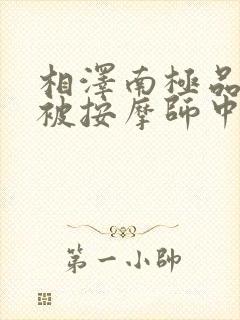 相澤南極品
被按摩師中
第一小帥